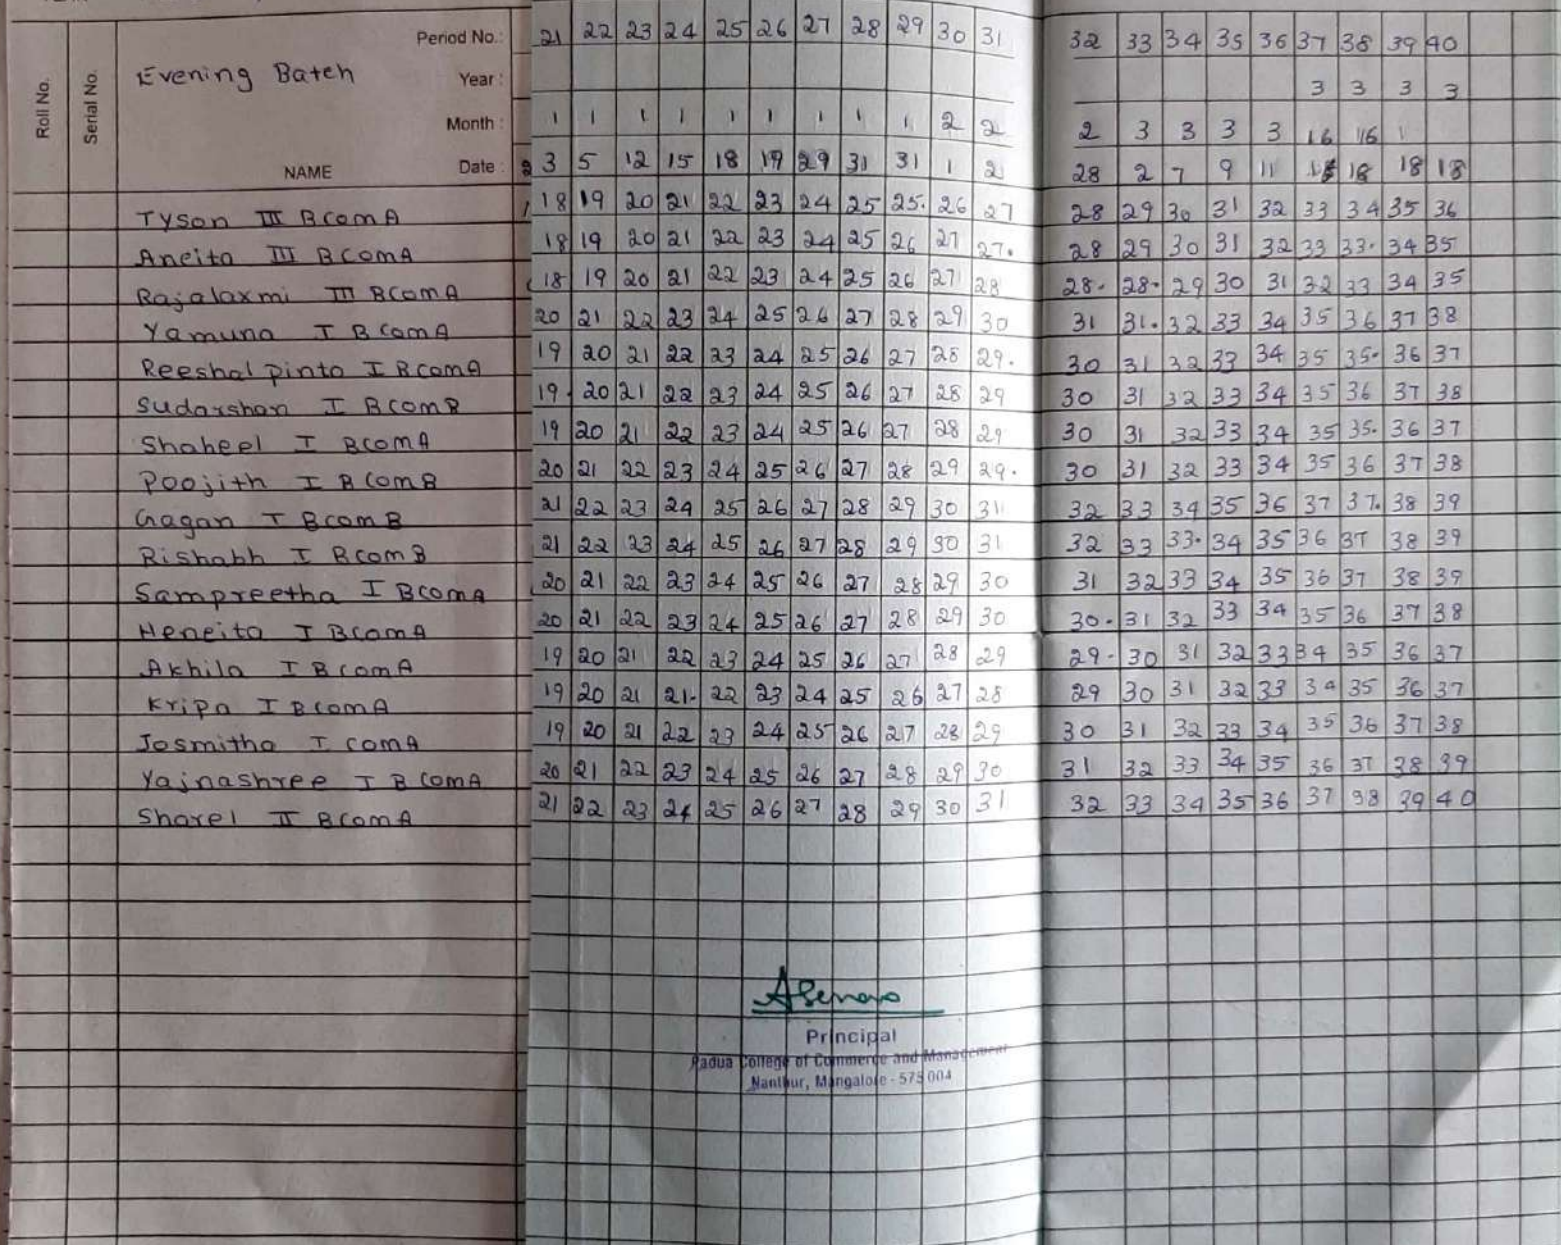 Period No.: 21 22 23 24 25 26 27 28 29 30 31 32 33 34 35 36 37 38 39 40
Roll No.
Serial No.
Evening Batch
Year: 3 3 3 3
Month: 1 1 1 1 1 1 1 1 1 2 2 2 3 3 3 3 16 16 1
NAME Date: 3 5 12 15 18 19 29 31 31 1 2 28 2 7 9 11 18 18 18
Tyson III BcomA 18 19 20 21 22 23 24 25 25. 26 27 28 29 30 31 32 33 34 35 36
Aneita III BcomA 18 19 20 21 22 23 24 25 26 27 27. 28 29 30 31 32 33 33. 34 35
Rajalaxmi III BcomA 18 19 20 21 22 23 24 25 26 27 28 28. 28. 29 30 31 32 33 34 35
Yamuna I BcomA 20 21 22 23 24 25 26 27 28 29 30 31 31. 32 33 34 35 36 37 38
Reeshal pinto I BcomA 19 20 21 22 23 24 25 26 27 28 29. 30 31 32 33 34 35 35. 36 37
Sudarshan I BcomB 19. 20 21 22 23 24 25 26 27 28 29 30 31 32 33 34 35 36 37 38
Shaheel I BcomA 19 20 21 22 23 24 25 26 27 28 29 30 31 32 33 34 35 35. 36 37
Poojith I BcomB 20 21 22 23 24 25 26 27 28 29 29. 30 31 32 33 34 35 36 37 38
Gagan I BcomB 21 22 23 24 25 26 27 28 29 30 31 32 33 34 35 36 37 37. 38 39
Rishabh I BcomB 21 22 23 24 25 26 27 28 29 30 31 32 33 33. 34 35 36 37 38 39
Sampreetha I BcomA 20 21 22 23 24 25 26 27 28 29 30 31 32 33 34 35 36 37 38 39
Heneita I BcomA 20 21 22 23 24 25 26 27 28 29 30 30. 31 32 33 34 35 36 37 38
Akhila I BcomA 19 20 21 22 23 24 25 26 27 28 29 29. 30 31 32 33 34 35 36 37
Kripa I BcomA 19 20 21 21. 22 23 24 25 26 27 28 29 30 31 32 33 34 35 36 37
Josmitha I comA 19 20 21 22 23 24 25 26 27 28 29 30 31 32 33 34 35 36 37 38
Yajnashree I BcomA 20 21 22 23 24 25 26 27 28 29 30 31 32 33 34 35 36 37 38 39
Sharel II BcomA 21 22 23 24 25 26 27 28 29 30 31 32 33 34 35 36 37 38 39 40
Principal
Padua College of Commerce and Management
Nanthur, Mangalore - 575 004